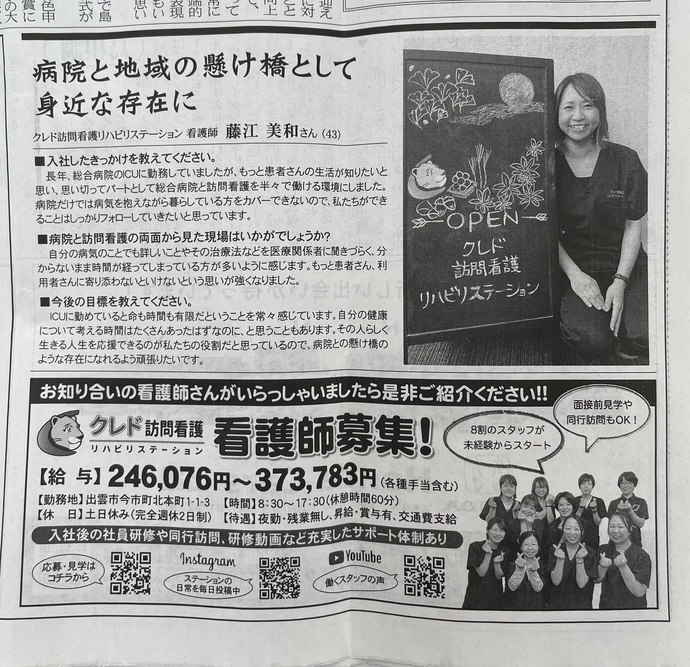 病院と地域の懸け橋として
身近な存在に
クレド訪問看護リハビリステーション 看護師 藤江 美和さん(43)
■入社したきっかけを教えてください。
長年、総合病院のICUに勤務していましたが、もっと患者さんの生活が知りたいと
思い、思い切ってパートとして総合病院と訪問看護を半々で働ける環境にしました。
病院だけでは病気を抱えながら暮らしている方をカバーできないので、私たちができ
ることはしっかりフォローしていきたいと思っています。
■病院と訪問看護の両面から見た現場はいかがでしょうか?
自分の病気のことでも詳しいことやその治療法などを医療関係者に聞きづらく、分
からないまま時間が経ってしまっている方が多いように感じます。もっと患者さん、利
用者さんに寄り添わないといけないという思いが強くなりました。
■今後の目標を教えてください。
ICUに勤めていると命も時間も有限だということを常々感じています。自分の健康
について考える時間はたくさんあったはずなのに、と思うこともあります。その人らしく
生きる人生を応援できるのが私たちの役割だと思っているので、病院との懸け橋の
ような存在になれるよう頑張りたいです。
OPEN
クレド
訪問看護
リハビリステーション
お知り合いの看護師さんがいらっしゃいましたら是非ご紹介ください!!
クレド訪問看護
リハビリステーション
看護師募集!
8割のスタッフが
未経験からスタート
面接前見学や
同行訪問もOK!
【給 与】246,076円〜373,783円(各種手当含む)
【勤務地】出雲市今市町北本町1-1-3 【時間】8:30〜17:30(休憩時間60分)
【休 日】土日休み(完全週休2日制) 【待遇】夜勤・残業無し、昇給・賞与有、交通費支給
入社後の社員研修や同行訪問、研修動画など充実したサポート体制あり
応募・見学は
コチラから
Instagram
ステーションの
日常を毎日投稿中
YouTube
働くスタッフの声